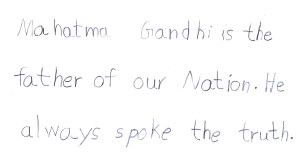 Mahatma Gandhi is the
father of our Nation. He
always spoke the truth.